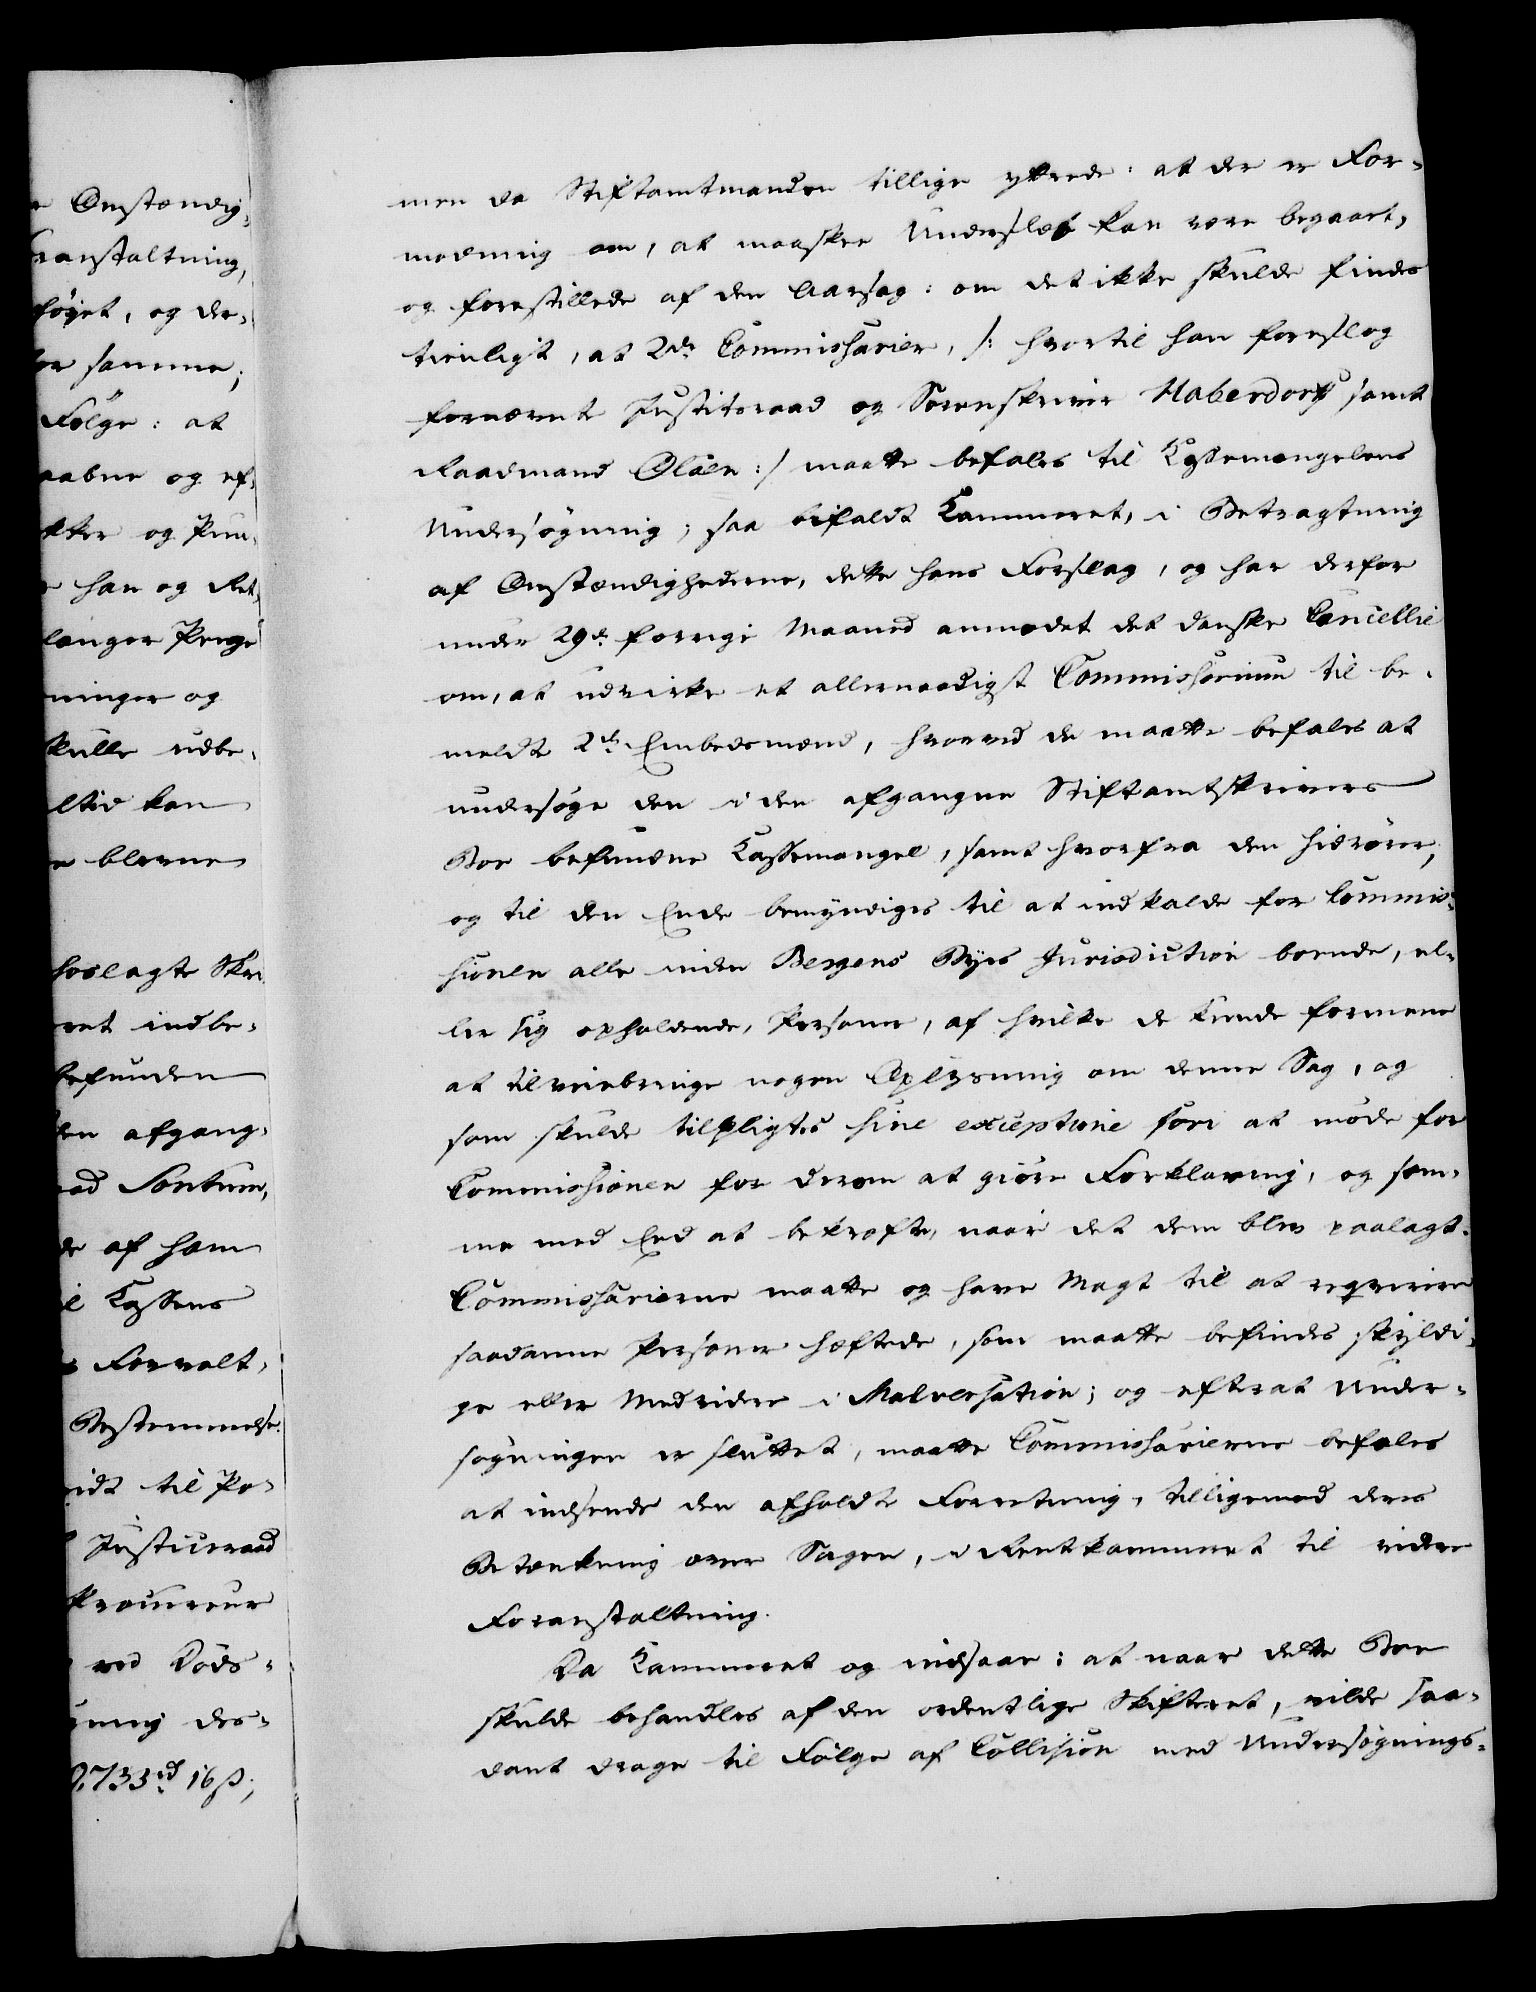 e Omstændig-
ranstaltning,
föyet, og der-
for samme;
Følge: at
aabne og ef-
kker og Pun-
e han og Ret-
længer Penge
ninger og
skulle udbe-
altid kan
e blevne
hoslagte Skri-
ret indbe-
befunden
den afgang-
aad Sontum,
de af ham
il Cassens
s Forvalt-
Bestemmelse.
idt til Po-
Justiceraad
Procureur
ved Döds-
ning des-
0,733 rd 16 ß;
men da Stiftamtmanden tillige yttrede: at der er For-
modning om, at maaskee Underslæb kan være begaaet,
og forestillede af den Aarsag: om det ikke skulde findes
tienligt, at 2de Commissarier, /: hvortil han foreslog
fornævnte Justitsraad og Sorenskriver Haberdorff samt
Raadmand Olsen :/ maatte befales til Cassemangelens
Undersøgning; saa bifaldt Kammeret, i Betragtning
af Omstændighederne, dette hans Forslag, og har derfor
under 29de forrige Maaned anmodet det danske Cancellie
om, at udvirke et allernaadigst Commissorium til be-
meldte 2de Embedsmænd, hvorved de maatte befales at
undersøge den i den afgangne Stiftamtskrivers
Boe befundne Cassemangel, samt hvorfra den hidrører;
og til den Ende bemyndiges til at indkalde for Commis-
sionen alle inden Bergens Byes Jurisdiction boende, el-
ler sig opholdende, Personer, af hvilke de kunde formene
at tilveiebringe nogen Oplysning om denne Sag, og
som skulde tilpligtes sine exceptione fori at møde for
Commissionen for derom at giøre Forklaring, og sam-
me med Eed at bekræfte, naar det dem blev paalagt.
Commissarierne maatte og have Magt til at reqvirere
saadanne Personer hæftede, som maatte befindes skyldi-
ge eller Medvidere i Malversation; og efterat Under-
søgningen er sluttet, maatte Commissarierne befales
at indsende den afholdte Forretning, tilligemed deres
Betænkning over Sagen, i Rentekammeret til videre
Foranstaltning.
Da Kammeret og indsaae: at naar dette Boe
skulde behandles af den ordentlige Skifteret, vilde saa-
dant drage til Følge af Collision med Undersøgnings-